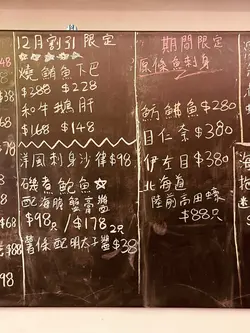 12月割引 限定
燒鮪魚下巴
$288 $228
和牛鵝肝
$168 $148
洋風刺身沙律 $98
磯煮鮑魚☆
配海膽蟹膏醬
$98只 / $178 2只
薯條配明太子醬 $38
期間限定
原條魚刺身
$280
目仁奈 $380
伊左目 $380
北海道
陸前高田蠔
$88只